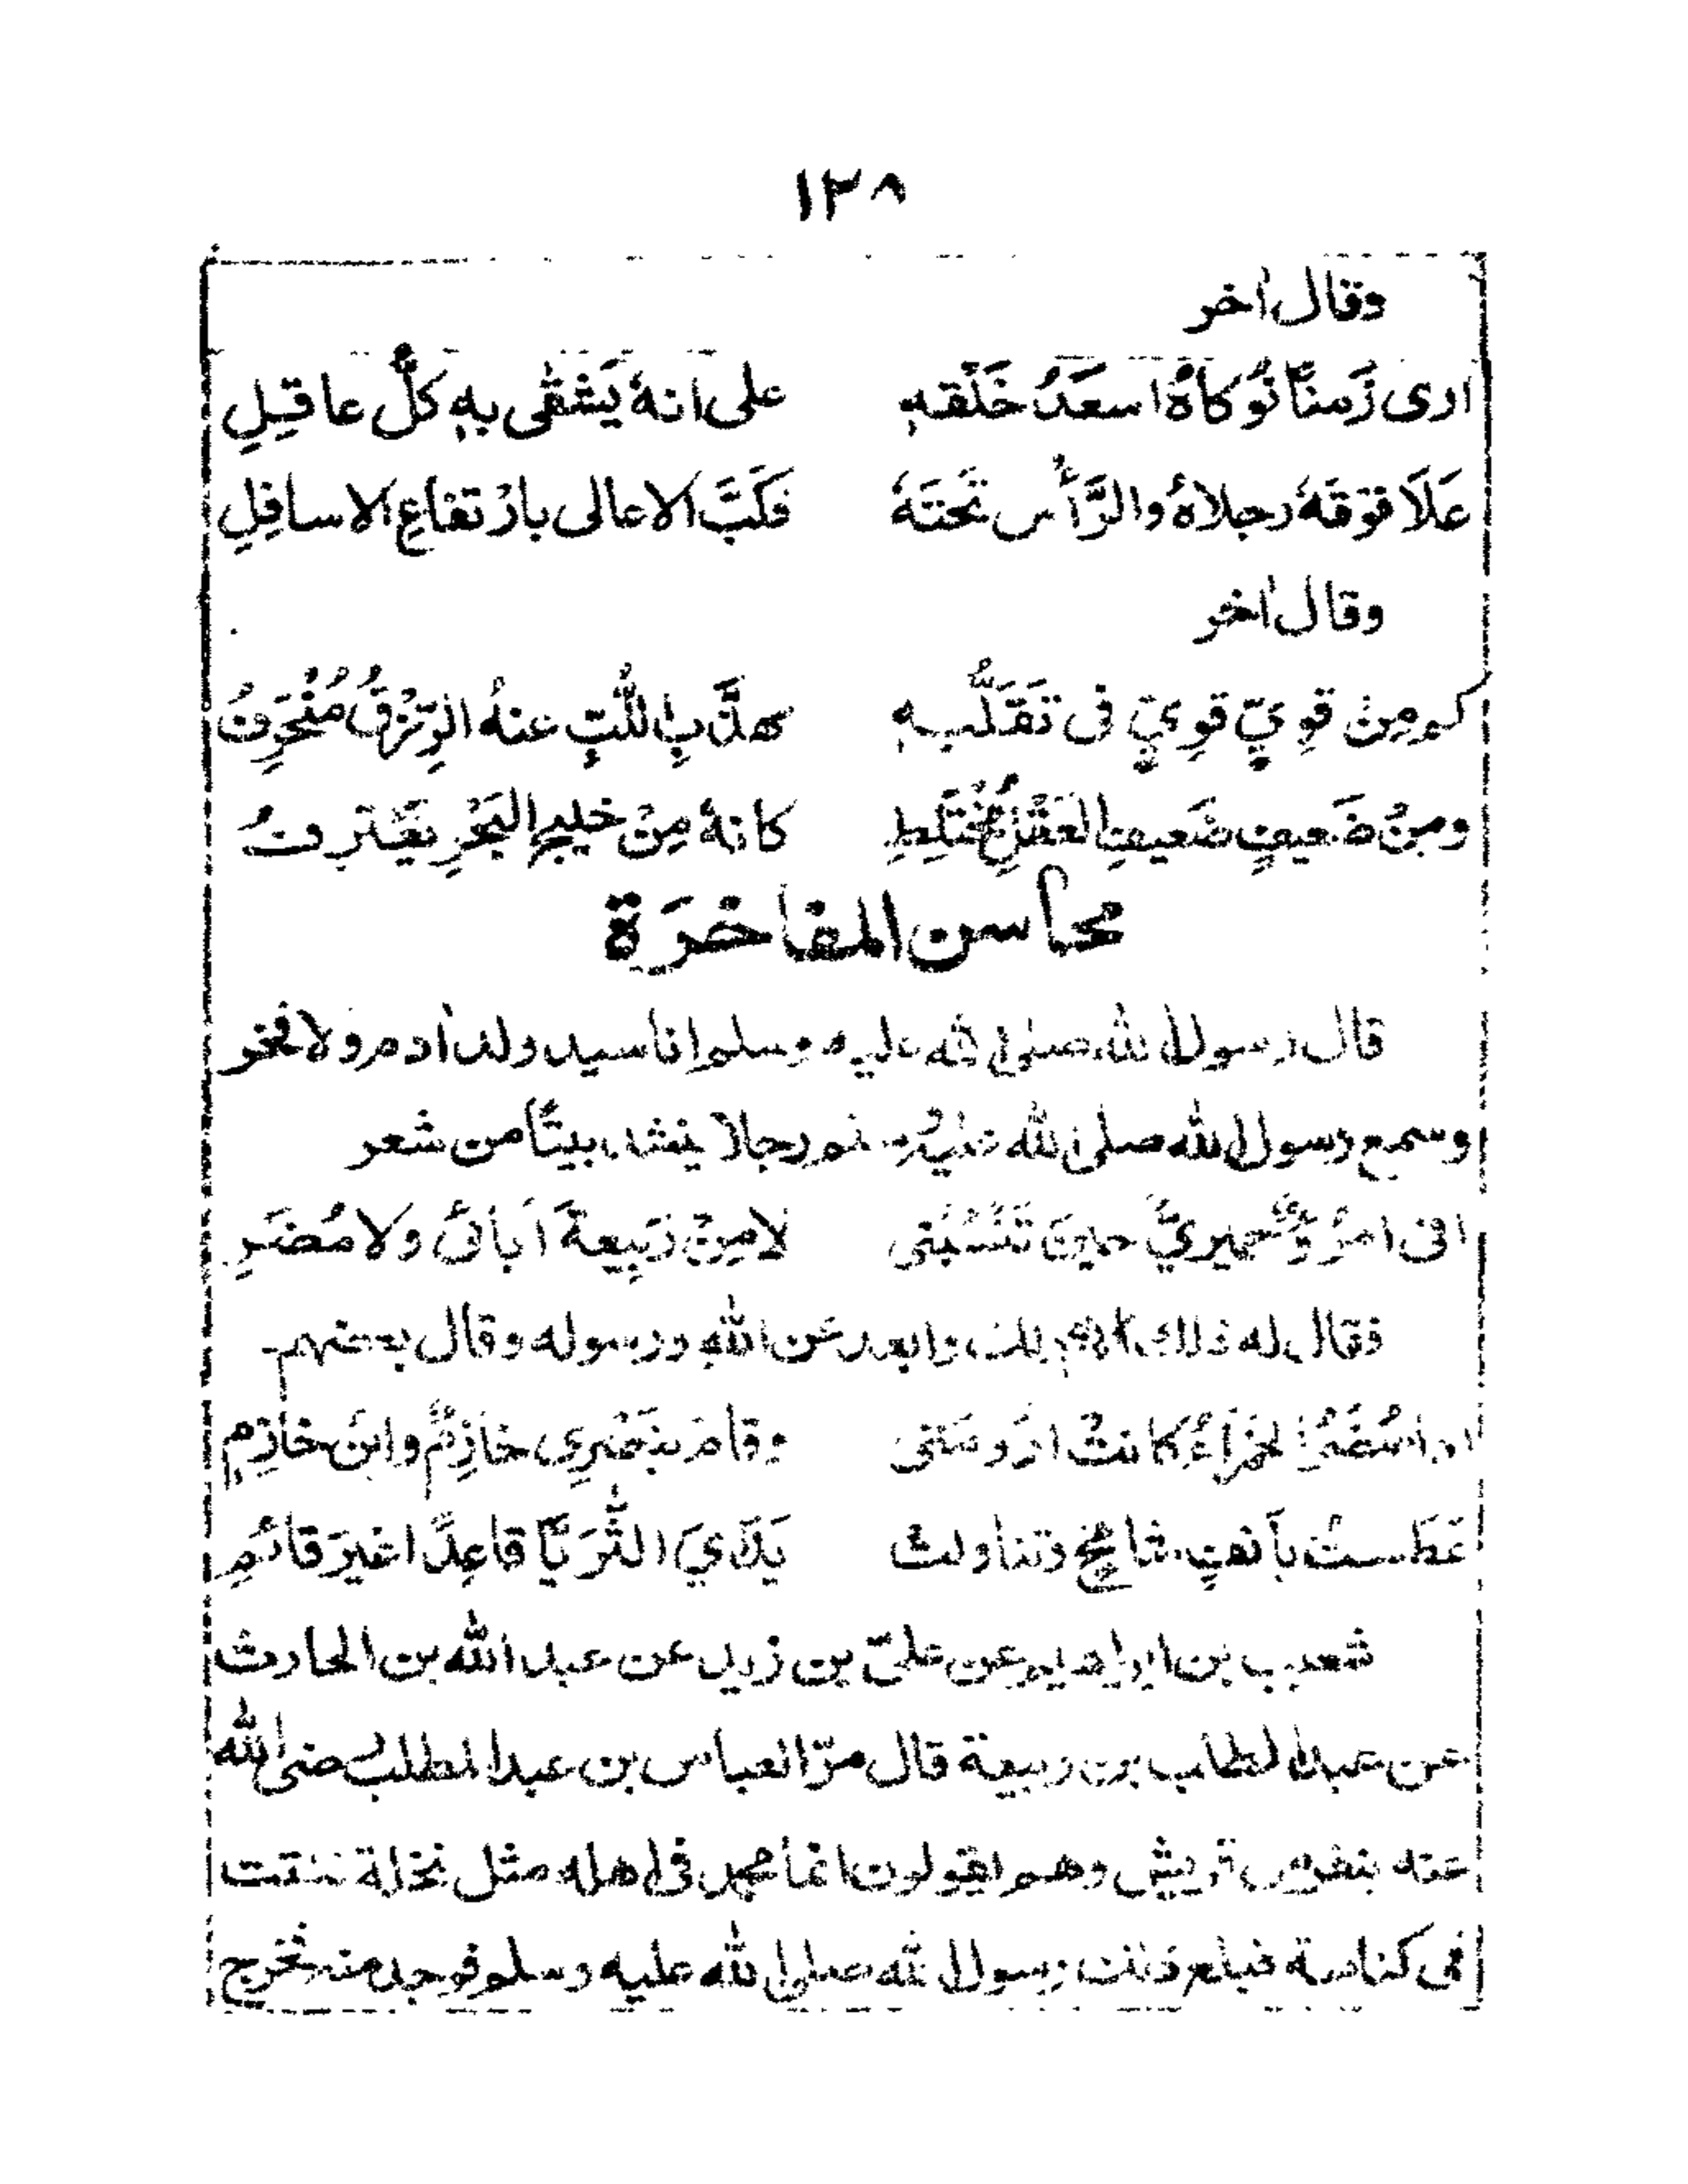 ١٢٨
وقال اخر
ارى زَمنًا نَوْكاهُ اسعَدُ خَلْقهٖ على انهُ يَشْقٰى بهٖ كلُّ عاقِلِ
عَلَا فوقَهُ رجلاهُ والرَّأس تَحتَهُ فكَبَّ الاعالى بارْتفاعِ الاسافِلِ
وقال اخر
كم مِن قوِيّ قوِيّ فى تَقَلُّبهٖ مهذَّبِ اللُّبِّ عنهُ الرِّزْقُ مُنْحَرِفُ
ومِنْ ضَعيفٍ ضَعيفِ العَقْلِ مُخْتَلِطِ كانهُ مِنْ خليجِ البَحْرِ يَغْترِفُ
محاسن المفاخَرَة
قال رسول الله صلى الله عليه وسلم انا سيد ولد آدم ولا فخر
وسمع رسول الله صلى الله عليه وسلم رجلا ينشد بيتًا من شعر
انى امرُؤٌ حميريٌّ حينَ تَنْسُبُنى لا مِنْ رَبِيعةَ آبائى ولا مُضَرِ
فقال له ذلك الأم لك وابعد عن الله ورسوله وقال بعضهم
اذا مُضَرُ الحَمراءُ كانتْ ارُومَتى وقامَ بنَصْرِى خازِمٌ وابنُ خازِمِ
عَطَستُ بأنفٍ شامخٍ وتناولتْ يَدَايَ الثُّرَيَّا قاعِدًا غيرَ قائمِ
شعيب بن ابراهيم عن علىّ بن زيد عن عبد الله بن الحارث
عن عبد المطلب بن ربيعة قال مرّ العباس بن عبد المطلب رضى الله
عنه بنفر من قريش وهم يقولون انما محمد فى اهله مثل نخلة نبتت
فى كناسة فبلغ ذلك رسول الله صلى الله عليه وسلم فوجد منه فخرج